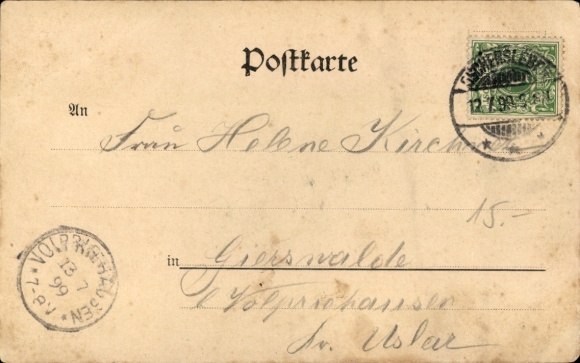 Postkarte
12.7.99
An
Frau Helene Kirchner
15.-
VOLPRIEHAUSEN
13 7
99
* 7-8 V.
in Gierswalde
b Volpriehausen
Kr. Uslar